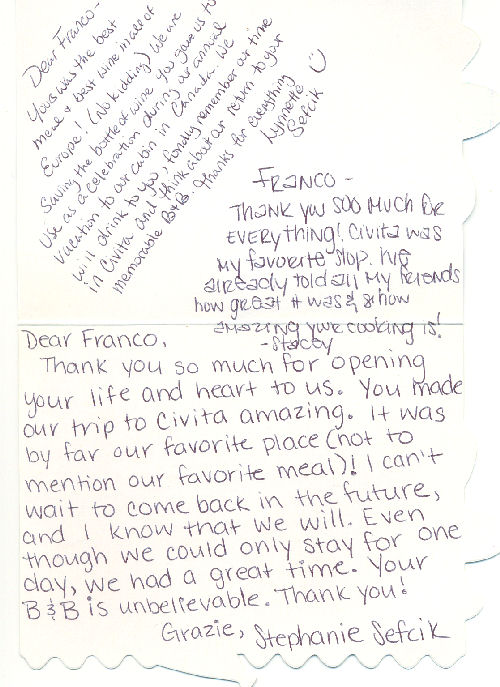 Dear Franco-
Yours was the best
meal & best wine in all of
Europe! (No kidding) We are
Saving the bottle of wine you gave us to
use as a celebration during our annual
vacation to our cabin in Canada. We
will drink to you, fondly remember our time
in Civita and think about our return to your
memorable B&B. Thanks for everything
Lynnette
Sefcik
FRANCO -
THANK YOU SOO MUCH FOR
EVERYTHING! Civita was
My favorite stop. I've
already told all my friends
how great it was & how
amazing your cooking is!
-Stacey
Dear Franco,
Thank you so much for opening
your life and heart to us. You made
our trip to Civita amazing. It was
by far our favorite place (not to
mention our favorite meal)! I can't
wait to come back in the future,
and I know that we will. Even
though we could only stay for one
day, we had a great time. Your
B&B is unbelievable. Thank you!
Grazie, Stephanie Sefcik